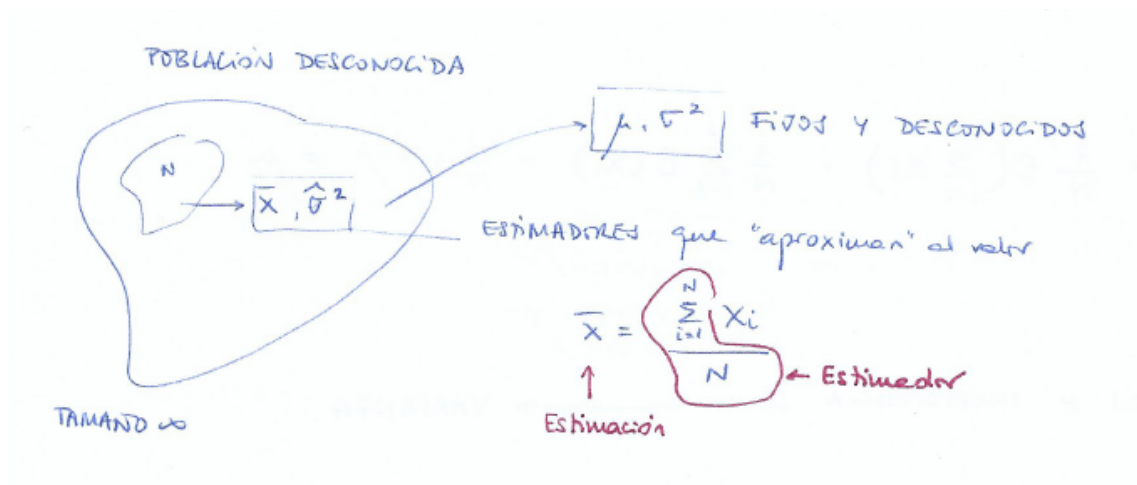 POBLACIÓN DESCONOCIDA
μ, σ² FIJOS Y DESCONOCIDOS
N
x̄, σ̂²
ESTIMADORES que "aproximan" al valor
x̄ = ∑_{i=1}^{N} Xi / N
← Estimador
↑
Estimación
TAMAÑO ∞